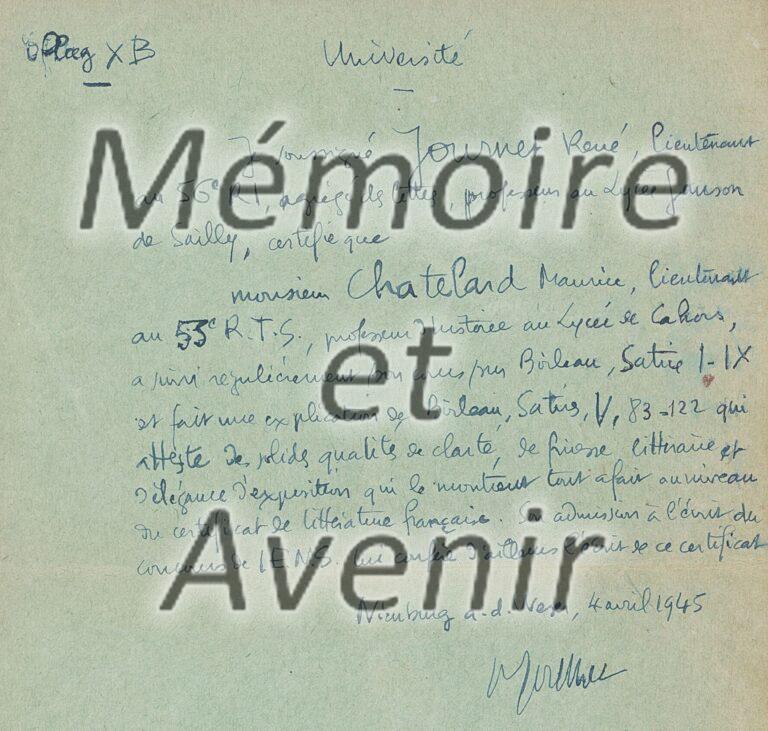 Oflag XB
Université
Je soussigné Journet René, lieutenant
au 56e R.I, agrégé des lettres, professeur au Lycée Janson
de Sailly, certifie que
monsieur Chatelard Maurice, lieutenant
au 53e R.T.S., professeur d'histoire au Lycée de Cahors,
a suivi régulièrement son cours sur Boileau, Satire I-IX
et fait une explication de Boileau, Satires, V, 83-122 qui
atteste de solides qualités de clarté, de finesse littéraire et
d'élégance d'exposition qui le montrent tout à fait au niveau
du certificat de littérature française. Son admission à l'écrit du
concours de l'E.N.S. lui confère d'ailleurs l'écrit de ce certificat
Nienburg a.d. Weser, 4 avril 1945
Mémoire
et
Avenir